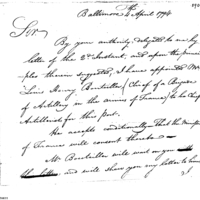 Baltimore 4th April 1794
Sir
By your authority delegated to me by
letter of the 2d Instant, and upon the princi
ples therein suggested, I have appointed Mr
Louis Henry (Chief of a
of Artillery in the armies of France) to be Chief
Artillerist for this port.
He accepts conditionally that the
of France will consent thereto
Mr will wait on you
and will show you my letter to him